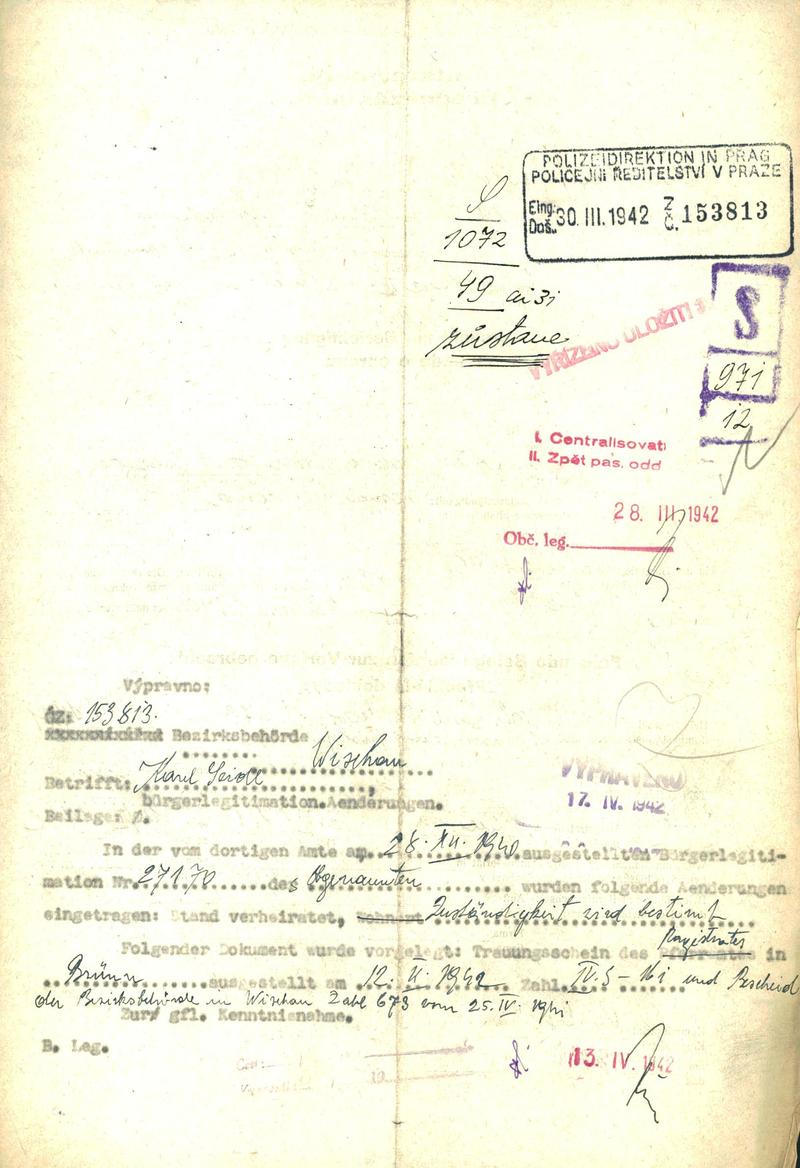 POLIZEIDIREKTION IN PRAG
POLICEJNÍ ŘEDITELSTVÍ V PRAZE
Eing. Doš. 30. III. 1942 Z Č. 153813
S
1072
49
zůstane
VYŘÍZENO ULOŽITI
S
971
12
I. Centralisovati
II. Zpět pas. odd
28. III. 1942
Obč. leg.
Výpravno:
čz: 153813.
Bezirksbehörde
Wischau
Betrifft: Karel Seidl
bürgerlegitimation.Aenderungen.
Beilage: Ø.
VYPRAVENO
17. IV. 1942
In der vom dortigen Amte am 28. XII. 1940 ausgestellten Bürgerlegiti-
mation Nr. 27170 des Obgenannten wurden folgende Aenderungen
eingetragen: Stand verheiratet, Zuständigkeit wird bestimt
Folgender Dokument wurde vorgelegt: Trauungsschein des Magistrates in
Brünn ausgestellt am 12. II. 1942 Zahl IV. 5 - und Bescheid
der Bezirksbehörde in Wischau Zahl 673 vom 25. IV.
Zur gfl. Kenntnisnahme.
B. Leg.
13. IV. 1942